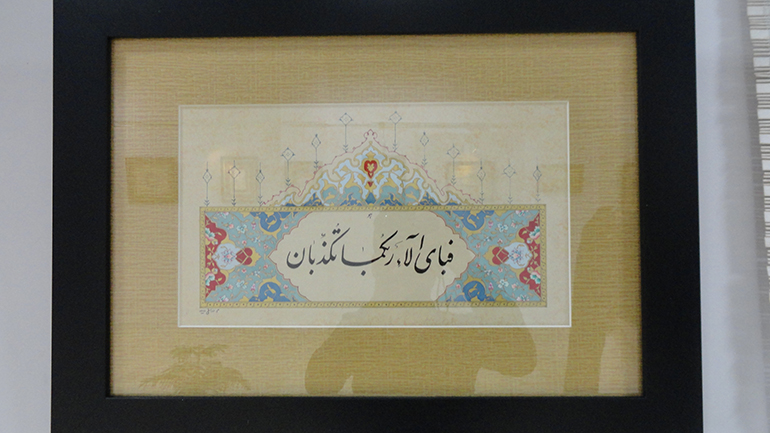 فبای الآء ربکما تکذبان